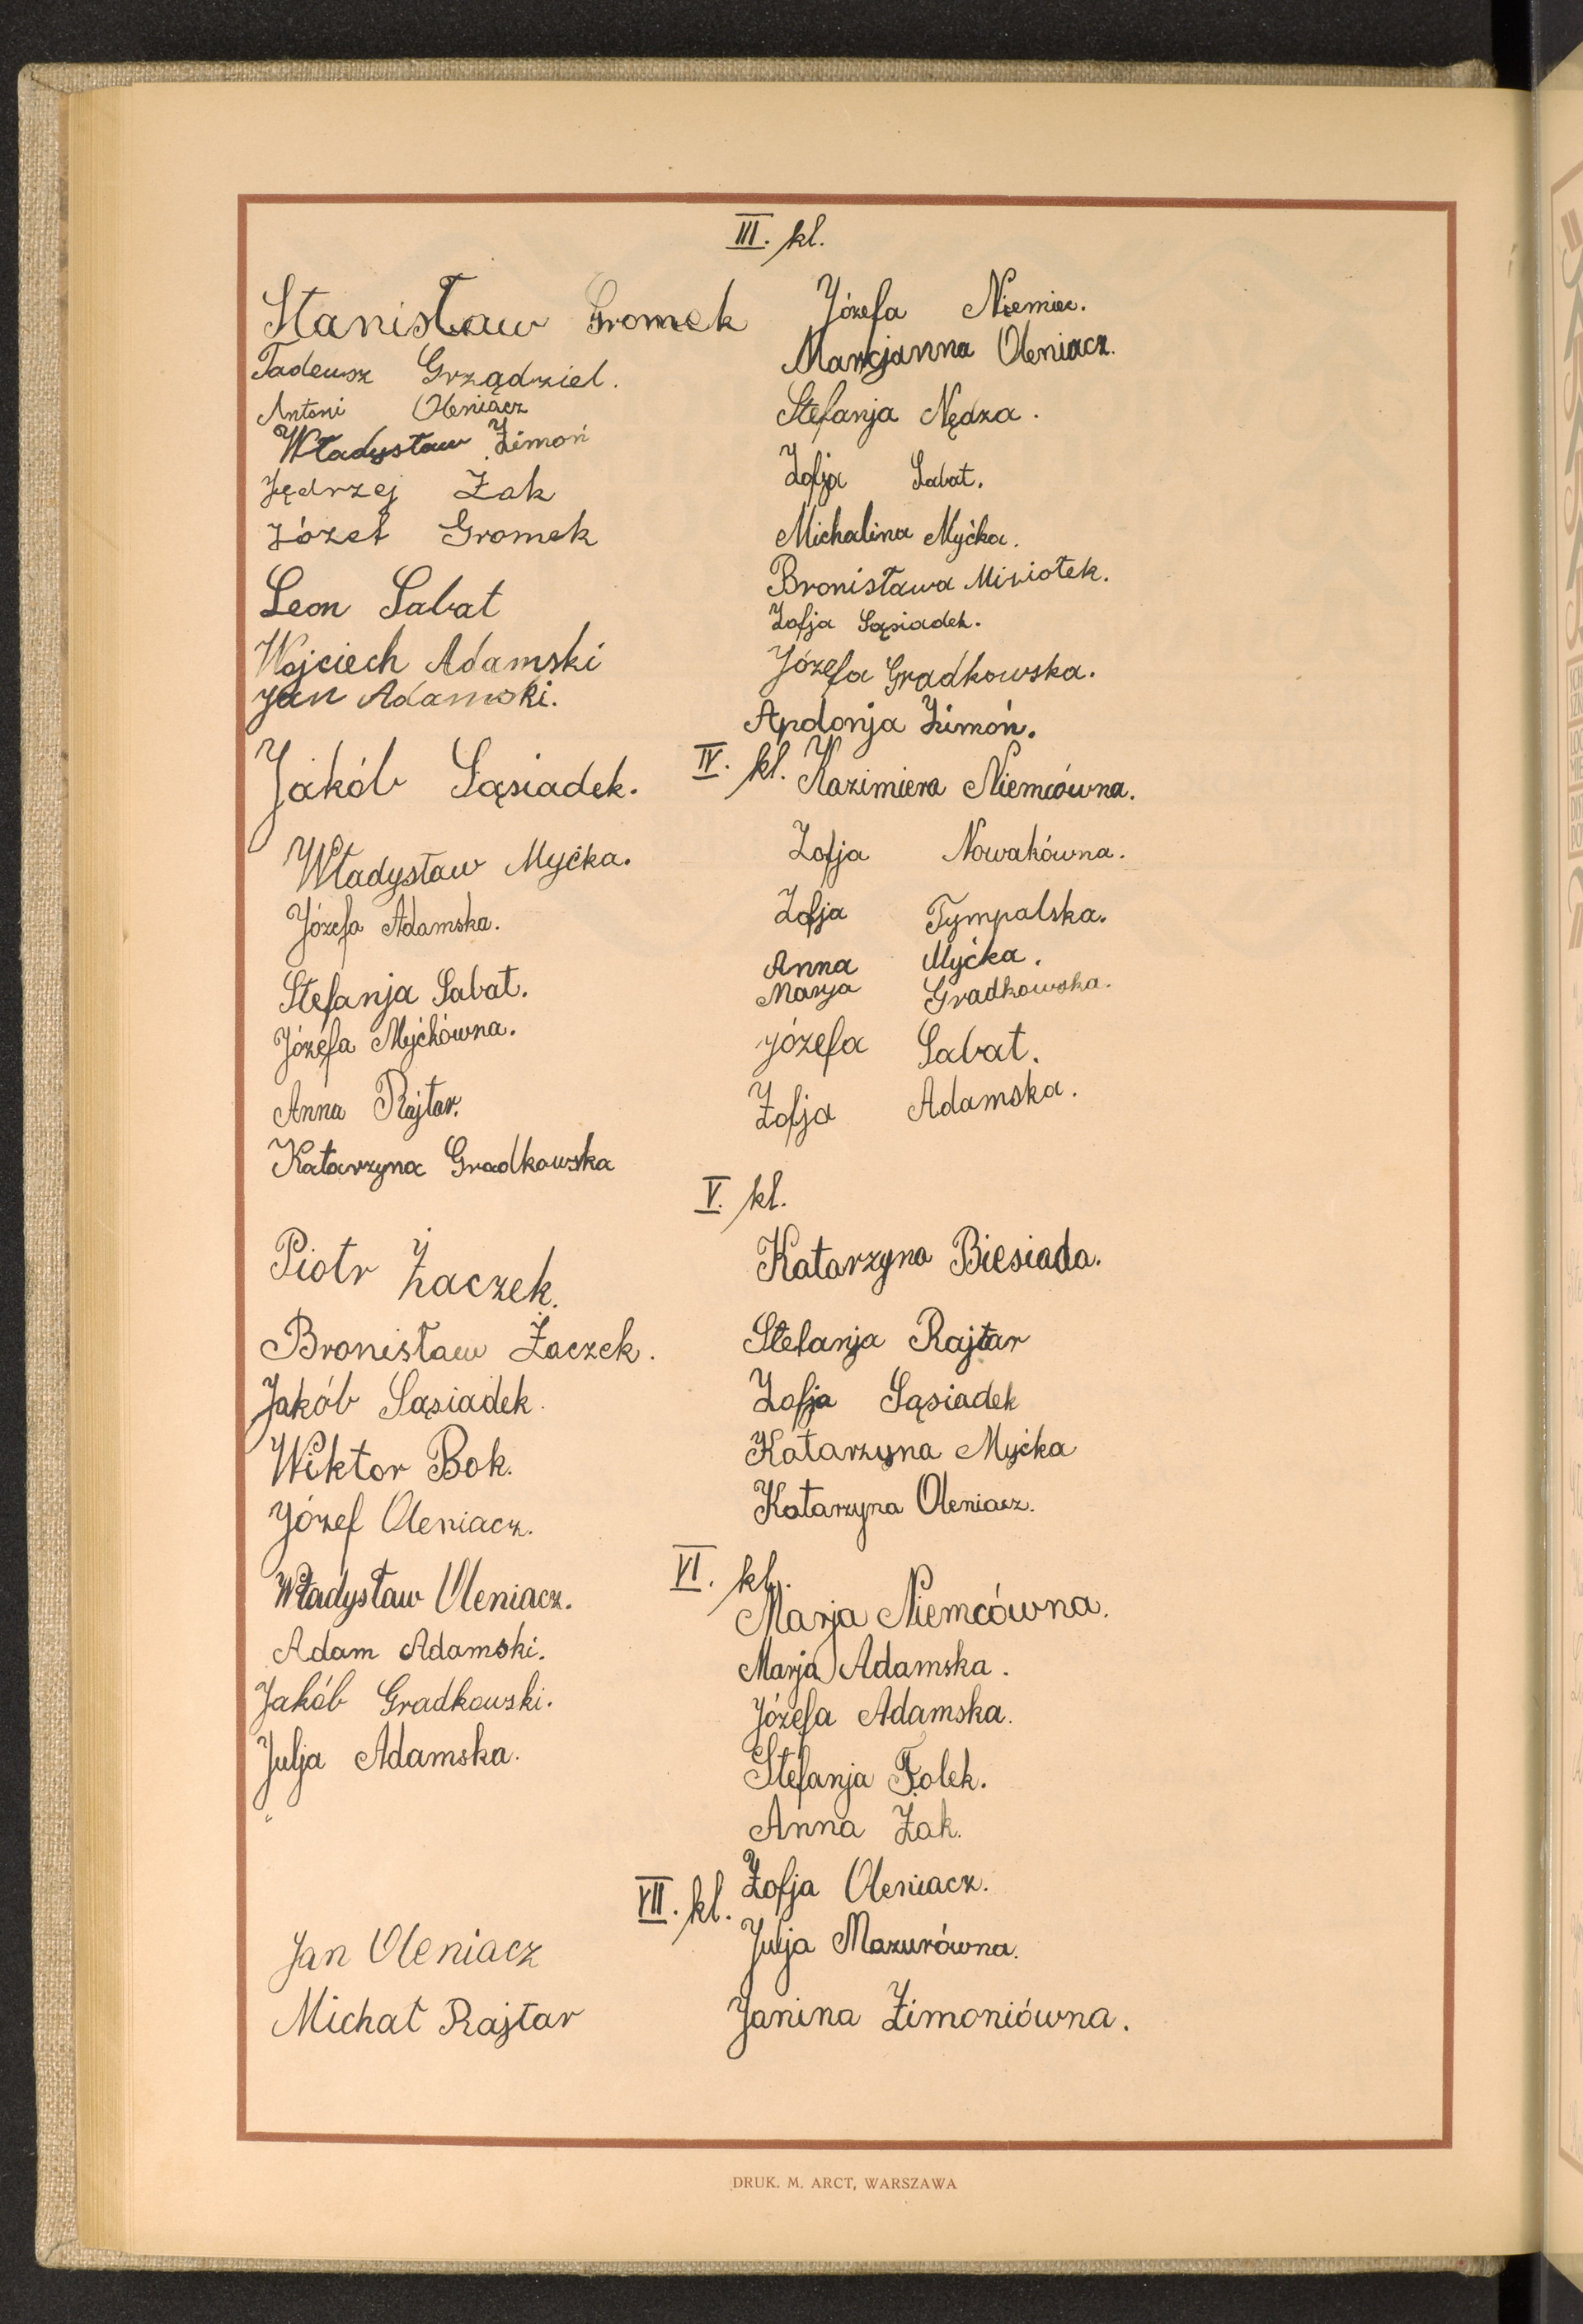 III. kl.
Stanisław Gromek
Tadeusz Grządziel.
Antoni Oleniacz
Władysław Zimoń
Jędrzej Żak
Józef Gromek
Leon Sabat
Wojciech Adamski
Jan Adamski.
Józefa Niemiec.
Marcjanna Oleniacz.
Stefanja Nędza.
Zofja Sabat.
Michalina Myćka.
Bronisława Misiołek.
Zofja Sąsiadek.
Józefa Gradkowska.
Apolonja Zimoń.
IV. kl.
Jakób Sąsiadek.
Władysław Myćka.
Józefa Adamska.
Stefanja Sabat.
Józefa Myćkówna.
Anna Rajtar.
Katarzyna Gradkowska
Kazimiera Niemcówna.
Zofja Nowakówna.
Zofja Tympalska.
Anna Myćka.
Marja Gradkowska.
Józefa Sabat.
Zofja Adamska.
V. kl.
Piotr Żaczek.
Bronisław Żaczek.
Jakób Sąsiadek.
Wiktor Bok.
Józef Oleniacz.
Katarzyna Biesiada.
Stefanja Rajtar
Zofja Sąsiadek
Katarzyna Myćka
Katarzyna Oleniacz.
VI. kl.
Władysław Oleniacz.
Adam Adamski.
Jakób Gradkowski.
Julja Adamska.
Marja Niemcówna.
Marja Adamska.
Józefa Adamska.
Stefanja Folek.
Anna Żak.
Zofja Oleniacz.
VII. kl.
Jan Oleniacz
Michał Rajtar
Julja Mazurówna.
Janina Zimoniówna.
DRUK. M. ARCT, WARSZAWA